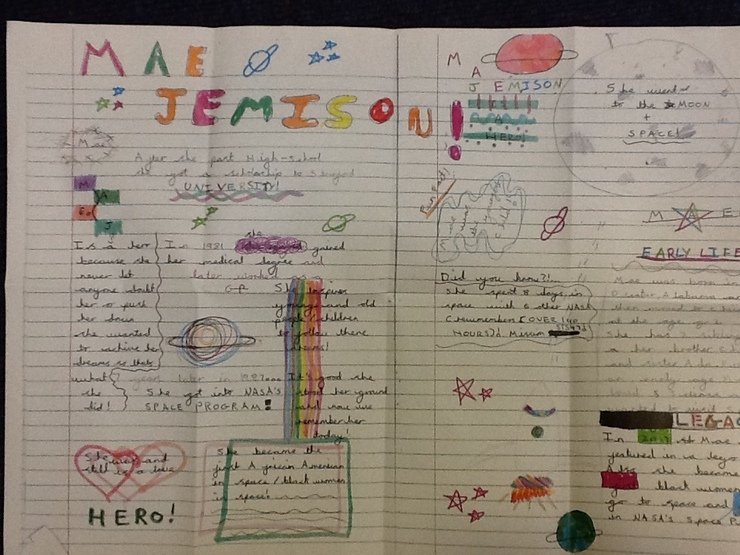 MAE
JEMISON
Mae
After she past High-School
she got a scholarship to
UNIVERSITY!
M
A
E
J
Is a hero
because she
never let
anyone doubt
her or push
her down
she wanted
to achieve her
dreams so thats
what
she
did!
In 1981 she gained
her medical degree and
later worked
GP
She inspires
young and old
people/children
to follow there
dreams!
years later in 1987
She got into NASA'S
SPACE PROGRAM!
It's good she
stood her ground
and now we
remember her
today!
She was and
still is a true
HERO!
She became the
first African American
in space/black women
in space!
M
A
JEMISON
IS
A
HERO!
She went
to the MOON
+
SPACE!
Fun Fact!
Mae
was
the youngest
child
Did you know?!
She spent 8 days in
space with 6 other NASA
Crewmembers OVER 190
HOURS!
MAE
EARLY LIFE
Mae was born in
Decatur, Alabama and
then moved to
at the age of
She has
a her brother
and sister
an early age
LEGAC
In 2017 Mae
featured in a lego
Also she became
black women
go to space and
in NASA's Space P